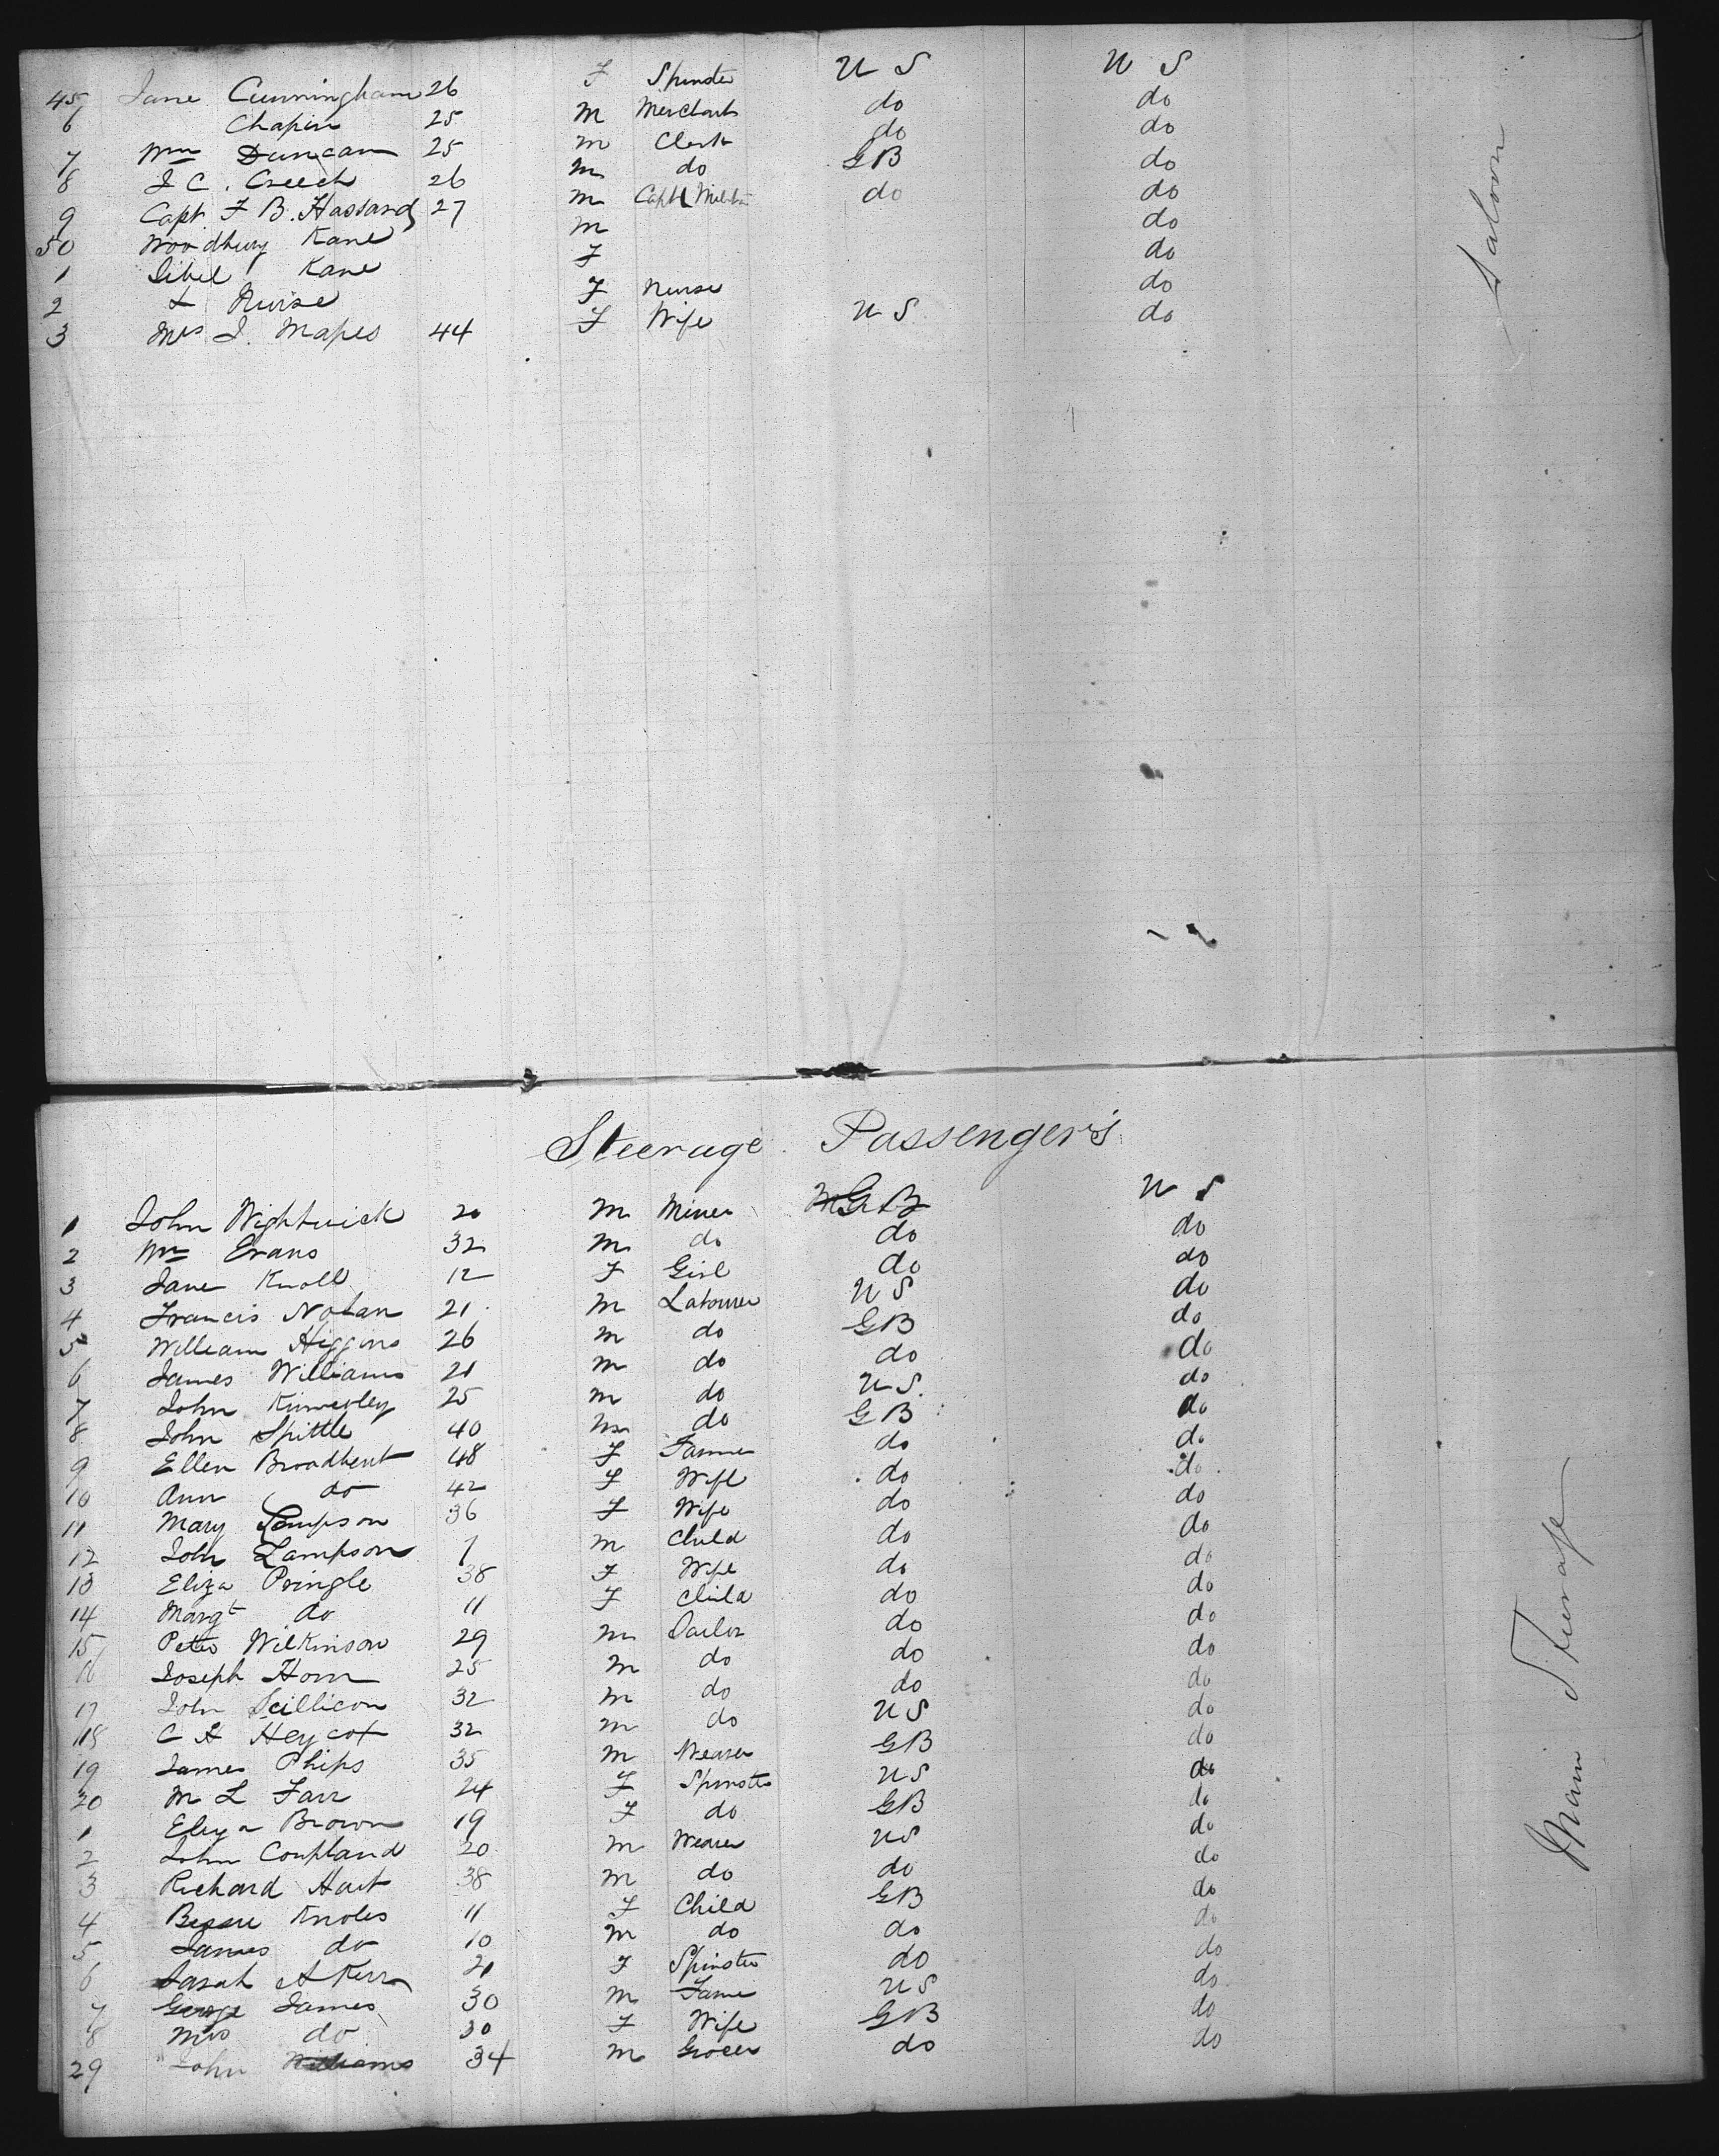 45 Jane Cunningham 26 F Spinster U S U S
6 Chapin 25 M Merchant do do
7 Wm Duncan 25 M Clerk do do
8 J C. Creech 26 M do GB do
9 Capt. F B. Hassard 27 M Capt Milita do do
50 Woodbury Kane M do
1 Sibel Kane F do
2 & Nurse F Nurse do
3 Mrs J. Mapes 44 F Wife U S. do
Saloon
Steerage Passengers
1 John Wightwick 20 M Miner GB U S
2 Wm Evans 32 M do do do
3 Jane Knoll 12 F Girl do do
4 Francis Nolan 21 M Labourer U S do
5 William Higgins 26 M do GB do
6 James Williams 21 M do do do
7 John 25 M do U S. do
8 John Spittle 40 M do GB do
9 Ellen Broadbent 48 F Farmer do do
10 Ann do 42 F Wife do do
11 Mary Lampson 36 F Wife do do
12 John Lampson 7 M Child do do
13 Eliza Pringle 38 F Wife do do
14 Margt do 11 F Child do do
15 Peter Wilkinson 29 M Tailor do do
16 Joseph Horn 25 M do do do
17 John 32 M do do do
18 C H Heycot 32 M do U S do
19 James Phips 35 M Weaver GB do
20 M L Farr 24 F Spinster U S do
1 Eliza Brown 19 F do GB do
2 John Coupland 20 M Weaver U S do
3 Richard Hart 38 M do do do
4 Bessie Knoles 11 F Child GB do
5 James do 10 M do do do
6 Sarah A Kerr 21 F Spinster do do
7 George James 30 M Farmer U S do
8 Mrs do 30 F Wife GB do
29 John Williams 34 M Grocer do do
Main Steerage